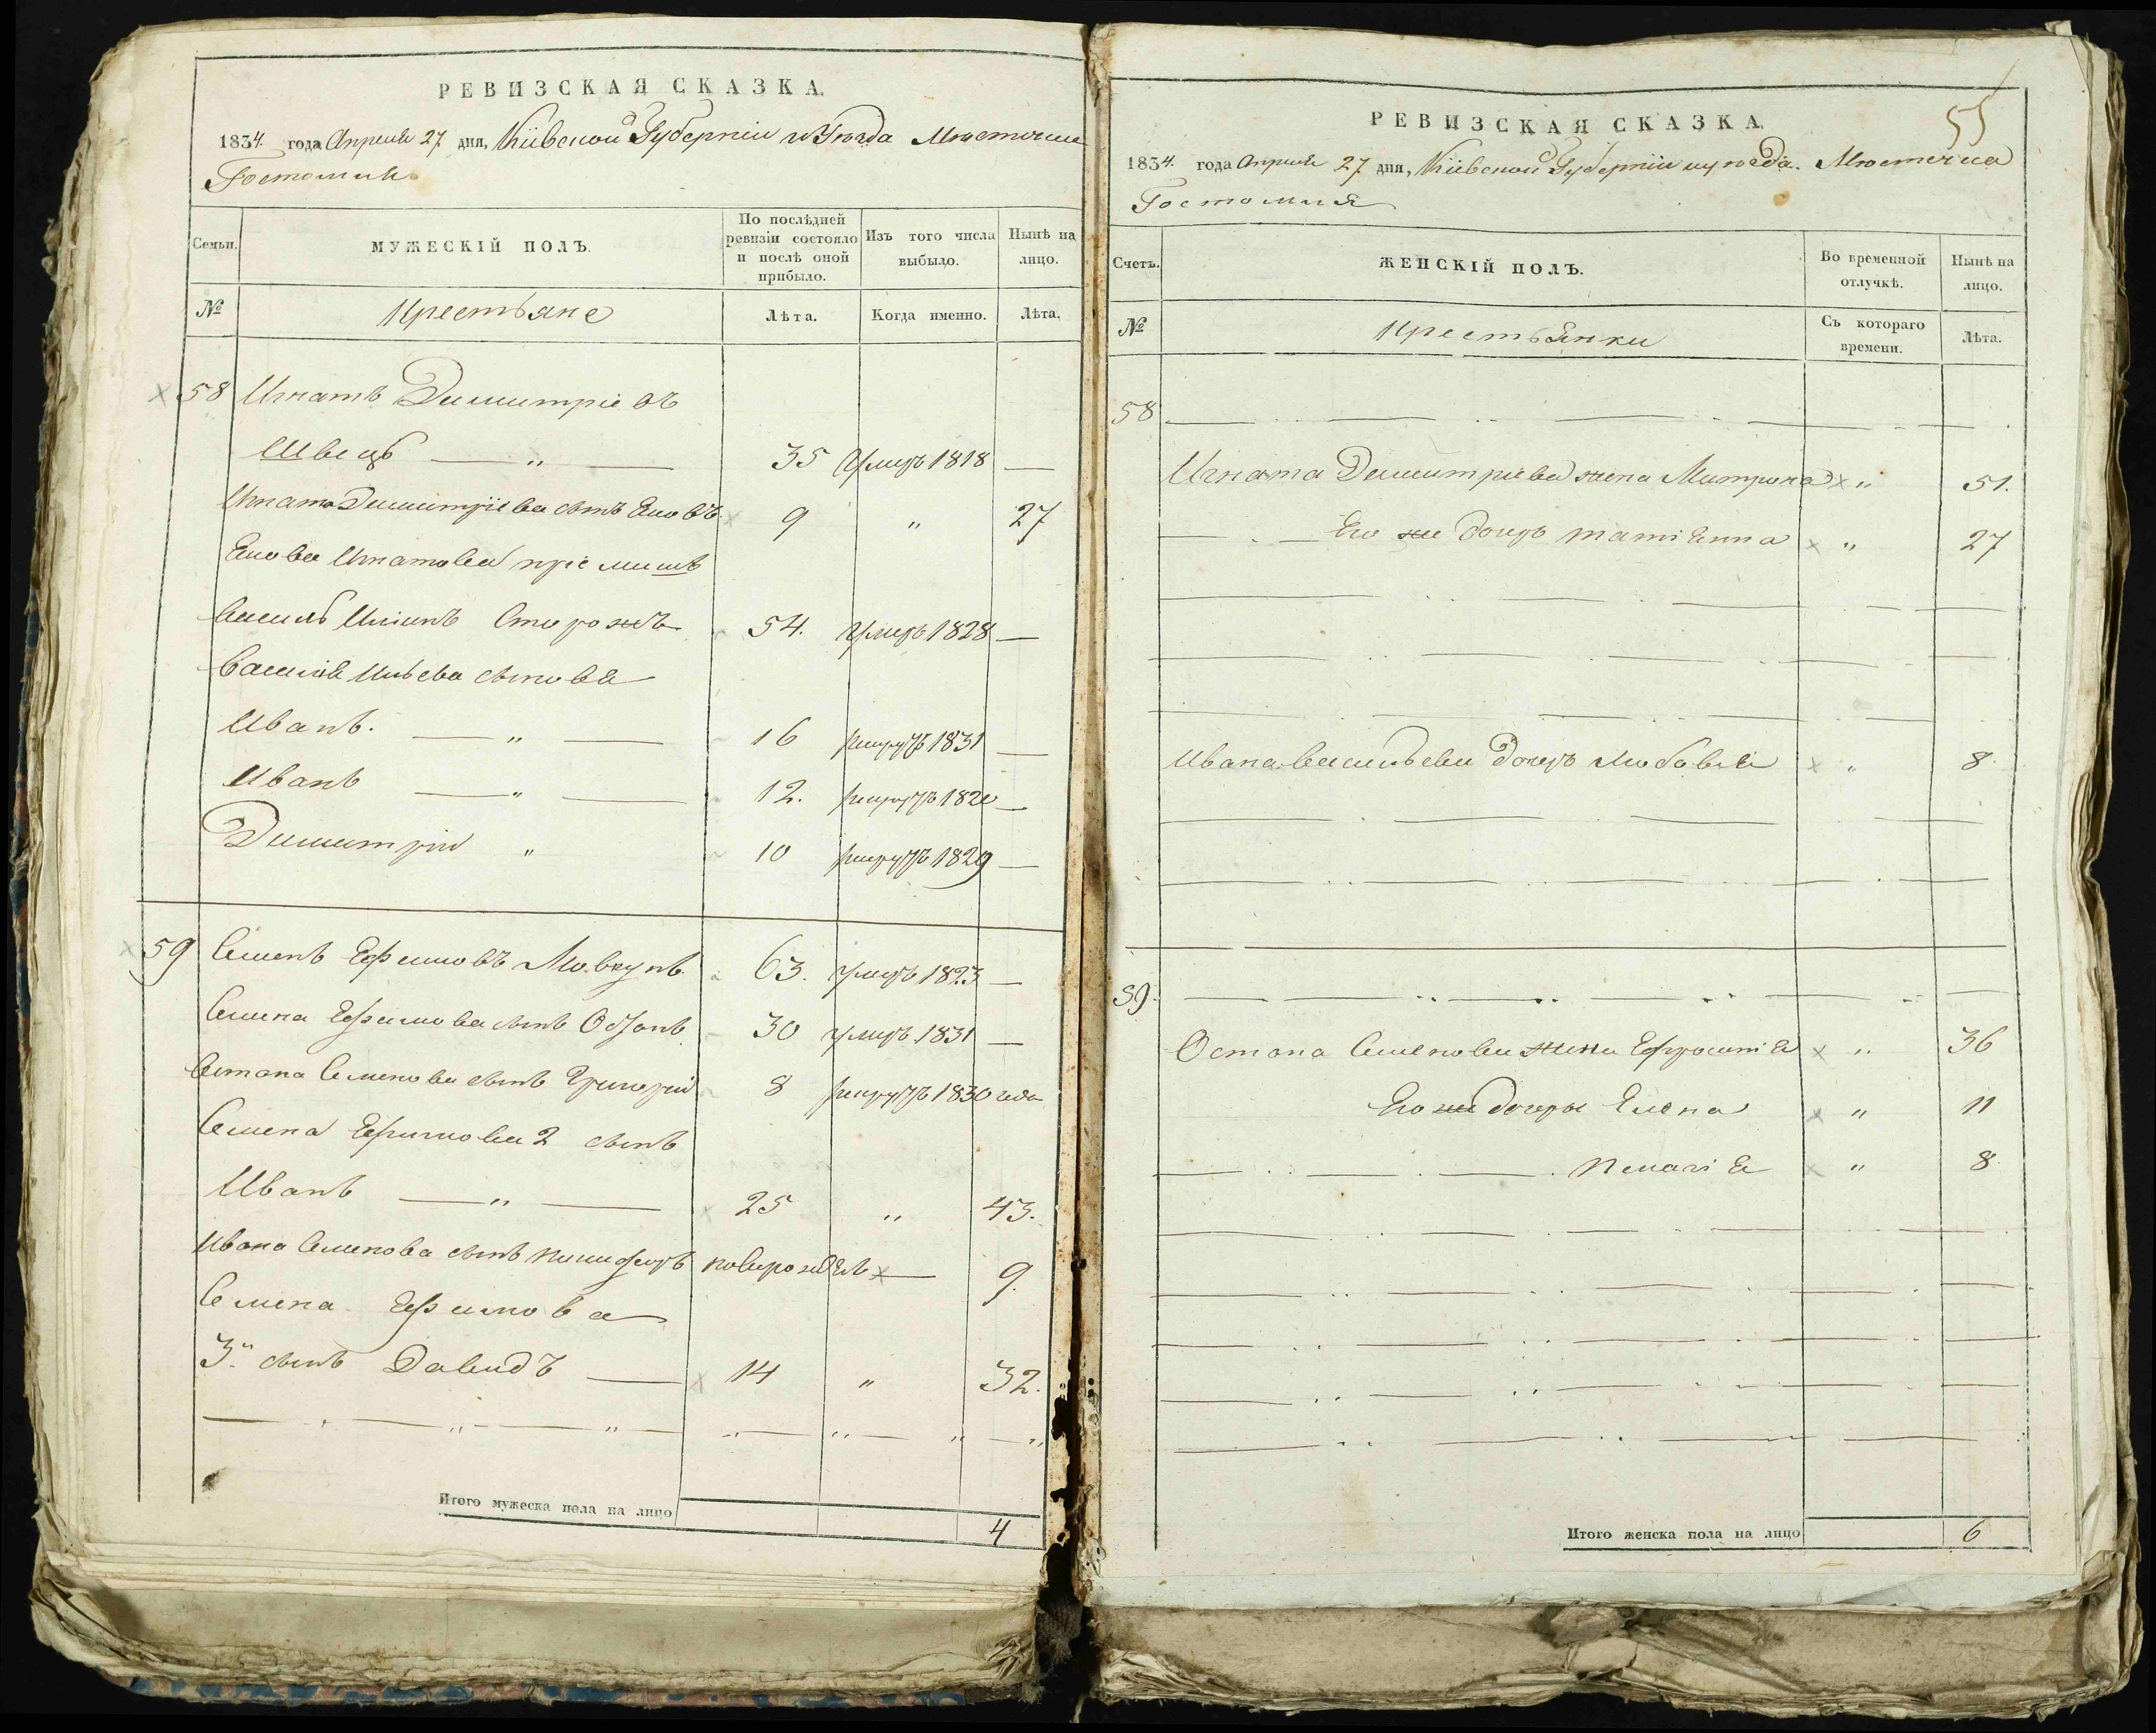 РЕВИЗСКАЯ СКАЗКА.
1834. года Апреля 27 дня, Кіевской Губерніи и Уезда Мѣстечка
Гостомля
Семьи.
МУЖЕСКІЙ ПОЛЪ.
По послѣдней ревизіи состояло и послѣ оной прибыло.
Изъ того числа выбыло.
Нынѣ на лицо.
№
Крестьяне
Лѣта.
Когда именно.
Лѣта.
58 Игнатъ Димитріевъ
Швецъ — „ — 35 Умеръ 1818 —
Игната Димитріева сынъ Яковъ 9 „ 27
Якова Игнатова пріемышъ
Василь Илiинъ Сторожъ 54. умеръ 1828 —
Василія Ильева сыновья
Иванъ. — „ — 16 рекрутъ 1831 —
Иванъ — „ — 12. рекрутъ 182 —
Димитрій „ 10 рекрутъ 1829 —
59 Семенъ Ефимовъ Мовкунъ. 63. умеръ 1823 —
Семена Ефимова сынъ Остапъ 30 умеръ 1831 —
Остапа Семенова сынъ Григорій 8 рекрутъ 1830 года
Семена Ефимова 2 сынъ
Иванъ — „ — 25 „ 43.
Ивана Семенова сынъ Никифоръ новорожденъ — 9.
Семена Ефимова
3й сынъ Давидъ — 14 „ 32.
Итого мужеска пола на лицо 4
55
РЕВИЗСКАЯ СКАЗКА.
1834. года Апреля 27 дня, Кіевской Губерніи и уѣзда. Мѣстечка
Гостомля
Счетъ.
ЖЕНСКІЙ ПОЛЪ.
Во временной отлучкѣ.
Нынѣ на лицо.
№
Крестьянки
Съ котораго времени.
Лѣта.
58
Игната Димитріева жена Митрона „ 51.
Его же дочерь Татіянна „ 27
Ивана Васильева дочерь Любовія „ 8.
59.
Остапа Семенова жена Ефросинія „ 36
Его же дочеры Елена „ 11
Пелагія „ 8.
Итого женска пола на лицо 6